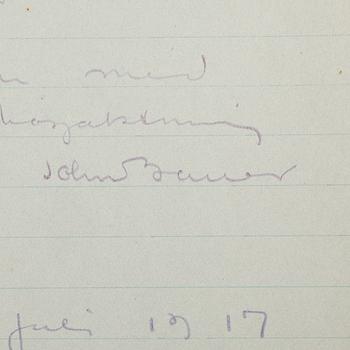 med
högaktning
John Bauer
juli 1917